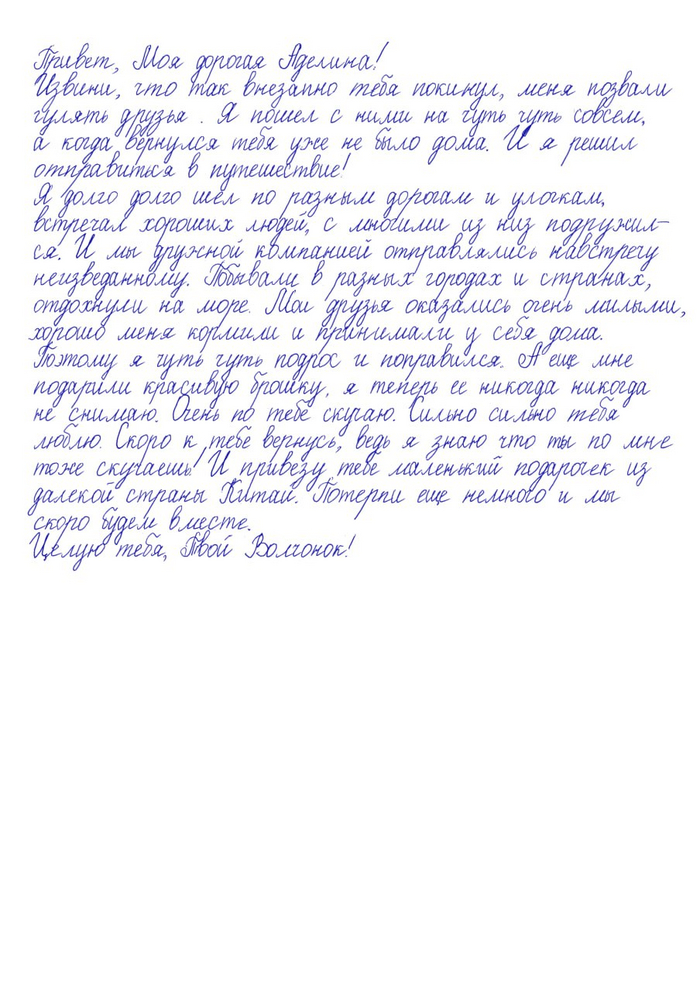 Привет, Моя дорогая Аделина!
Извини, что так внезапно тебя покинул, меня позвали
гулять друзья . Я пошел с ними на чуть чуть совсем,
а когда вернулся тебя уже не было дома. И я решил
отправиться в путешествие!
Я долго долго шел по разным дорогам и улочкам,
встречал хороших людей, с многими из низ подружил-
ся. И мы дружной компанией отправлялись навстречу
неизведанному. Побывали в разных городах и странах,
отдохнули на море. Мои друзья оказались очень милыми,
хорошо меня кормили и принимали у себя дома.
Поэтому я чуть чуть подрос и поправился. А еще мне
подарили красивую брошку, я теперь ее никогда никогда
не снимаю. Очень по тебе скучаю. Сильно сильно тебя
люблю. Скоро к тебе вернусь, ведь я знаю что ты по мне
тоже скучаешь! И привезу тебе маленький подарочек из
далекой страны Китай. Потерпи еще немного и мы
скоро будем вместе.
Целую тебя, Твой Волчонок!